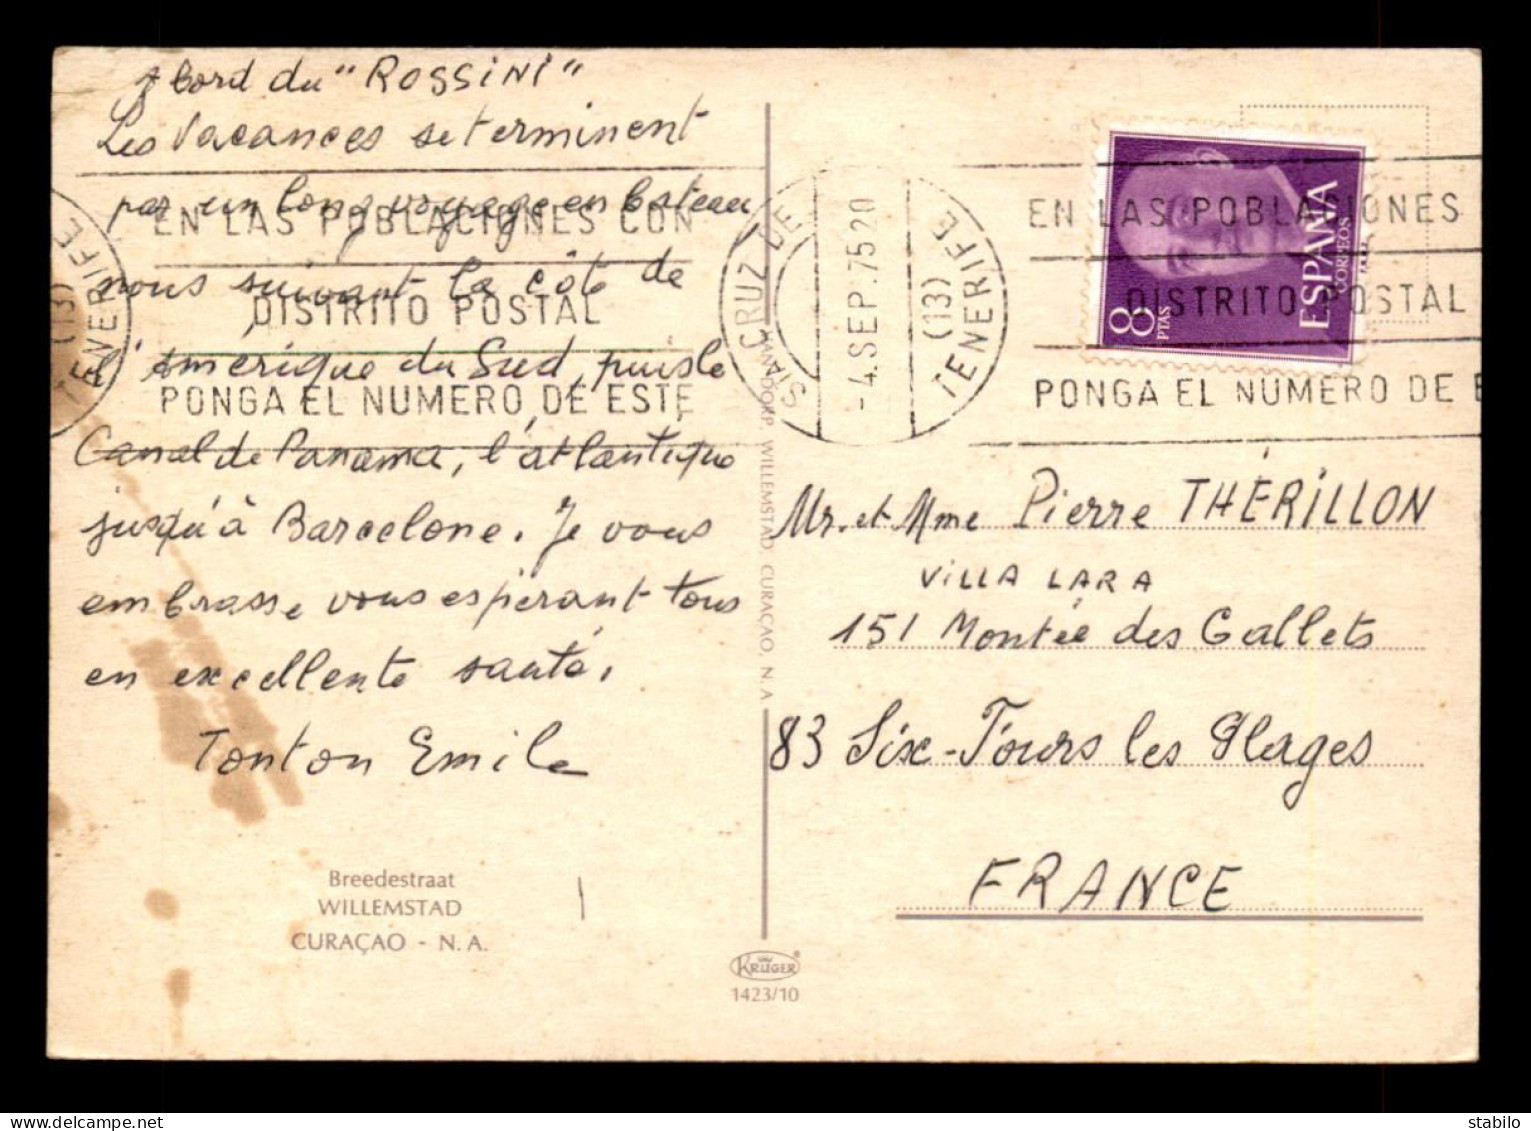 A bord du "ROSSINI"
Les vacances se terminent
par un long voyage en bateau,
nous suivant la côte de
l'Amérique du Sud, puis le
Canal de Panama, l'atlantique
jusqu'à Barcelone. Je vous
embrasse vous espérant tous
en excellente santé.
Tonton Emile
Breedestraat
WILLEMSTAD
CURAÇAO - N.A.
EN LAS POBLACIONES CON
DISTRITO POSTAL
PONGA EL NUMERO DE ESTE
(13)
TENERIFE
STA CRUZ DE
-4.SEP.75 20
(13)
TENERIFE
EN LAS POBLACIONES
DISTRITO POSTAL
PONGA EL NUMERO DE E
8 PTAS
ESPAÑA
CORREOS
WILLEMSTAD CURAÇAO, N.A.
KRUGER
1423/10
Mr. et Mme Pierre THÉRILLON
VILLA LARA
151 Montée des Gallets
83 Six-Fours les Plages
FRANCE
www.delcampe.net
stabilo